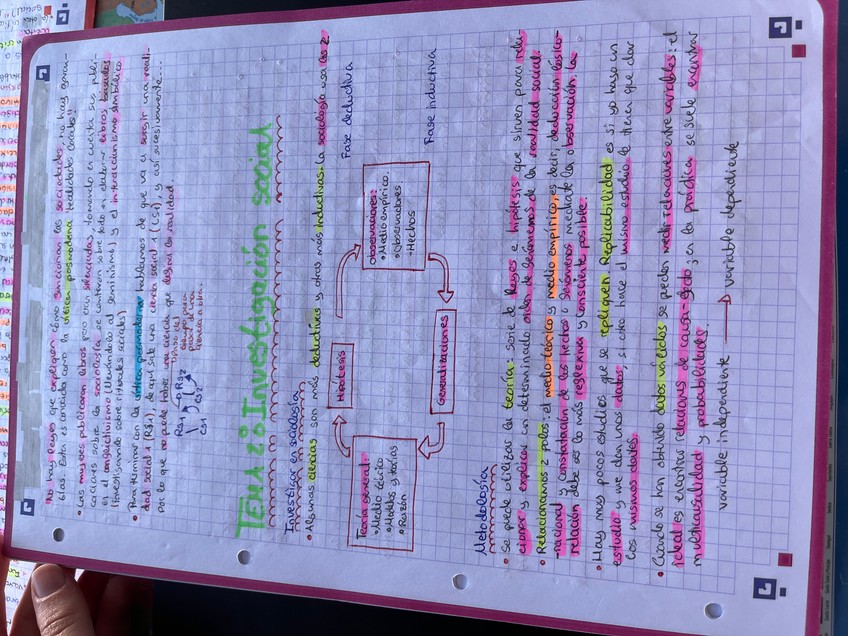 No hay leyes que expliquen cómo funcionan las sociedades, no hay
blas. Esto es conocido como la crítica posmoderna: realidades locales!!
• Las mujeres publicaron libros pero eran silenciadas, tomando en cuenta sus publi-
caciones sobre la sociología se centran sobre todo en abrir libros basados
en el conflictivismo (llevándolo al feminismo) y el interaccionismo simbólico
(investigando sobre rituales sociales)
• Para terminar con la crítica posmoderna hablamos de que va a surgir una reali-
dad social 1 (RS1), de aquí sale una ciencia social 1 (CS1), y así sucesivamente...
por lo que no puede haber una ciencia que defina la realidad.
RS1 → RS2
CS1 CS2
TEMA 2: Investigación social
Investigar en sociología
• Algunas ciencias son más deductivas y otras más inductivas. La sociología usa las 2
Fase deductiva
Hipótesis
Teoría general:
• Medio teórico
• Modelos y teorías
• Razón
Observaciones:
• Medio empírico.
• Observaciones
- Hechos
Generalizaciones
Fase inductiva
Metodología
• Se puede utilizar la teoría: serie de leyes e hipótesis que sirven para rela-
cionar y explicar un determinado orden de fenómenos de la realidad social.
• Relacionamos 2 polos: el medio teórico y medio empírico, es decir, deducción lógico-
racional y constatación de los hechos o fenómenos mediante la observación, la
relación debe ser lo más reflexiva y consciente posible.
• Hay muy pocos estudios que se repliquen. Replicabilidad es si, yo hago un
estudio y me dan unos datos, si otro hace el mismo estudio le tienen que dar
los mismos datos.
• Cuando se han obtenido datos válidos se pueden medir relaciones entre variables: el
ideal es encontrar relaciones de causa-efecto; en la práctica se suele encontrar
multicausalidad y probabilidades.
variable independiente → variable dependiente